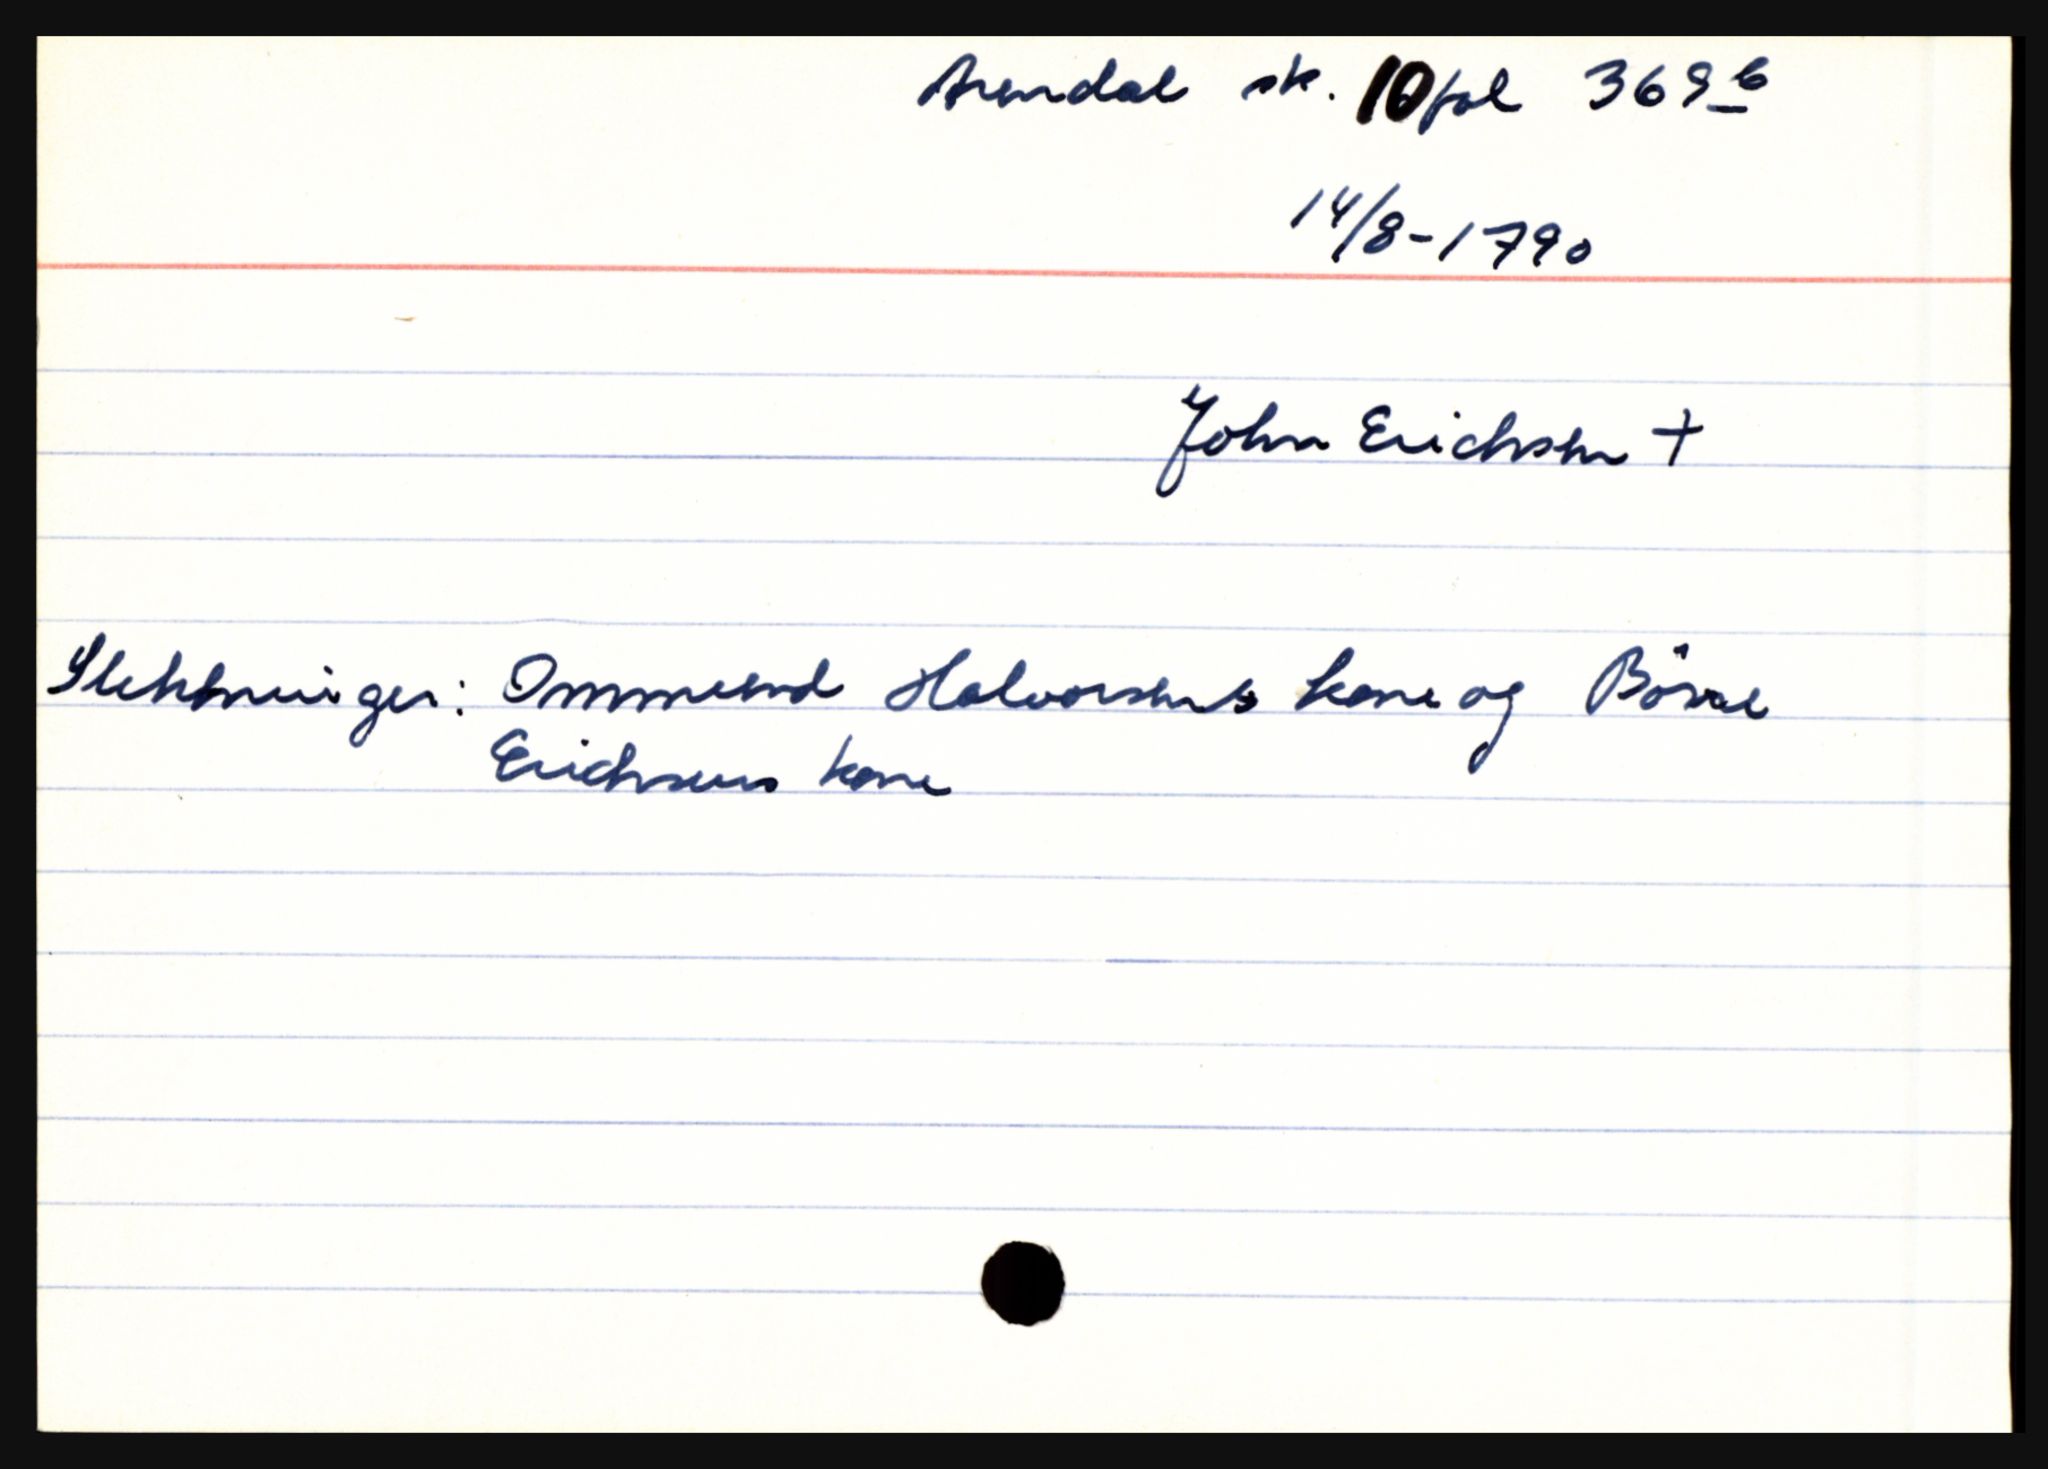 Arendal sk. 10 fol 369 b
14/8-1790
John Erichsen +
Slektninger: Ommund Halvorsens kone og Børre
Erichsens kone